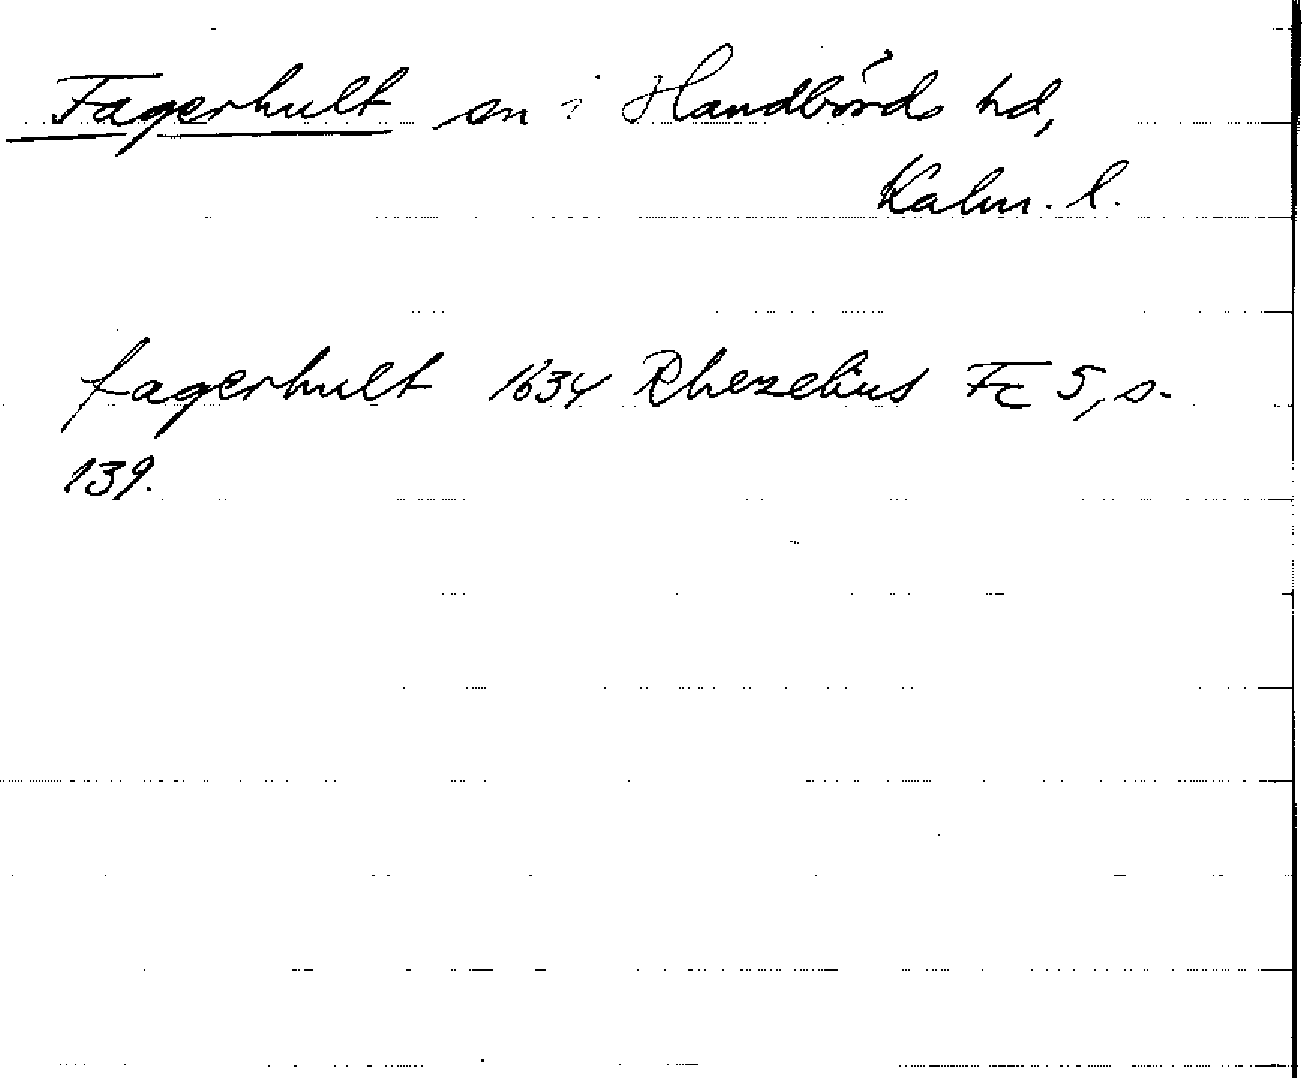 Fagerhult sn i Handbörds hd,
Kalm. l.
fagerhult 1634 Rhezelius Fc 5, s.
139.